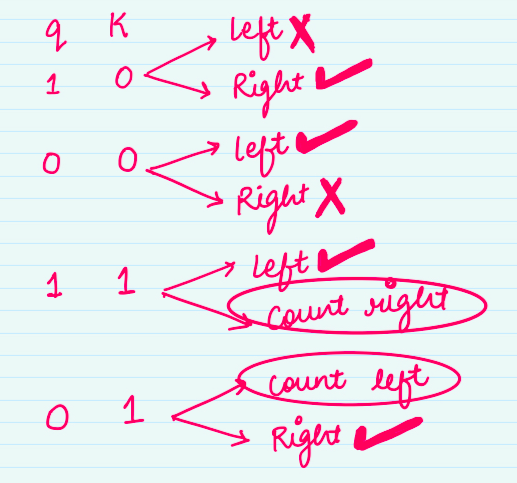 q K
Left ✗
1 0
Right ✓
Left ✓
0 0
Right ✗
Left ✓
1 1
Count right
Count left
0 1
Right ✓